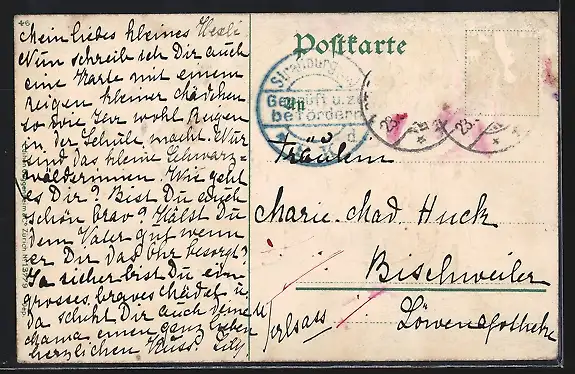 46
Mein liebes kleines Hexli
Nun schreib ich Dir auch
eine Karte mit einem
reigen kleiner Mädchen
so wie Ihr wohl Reigen
in der Schule macht. Nur
sind das kleine Schwarz=
wälderinnen. Wie geht
es Dir? Bist Du auch
schön brav? Hälst Du
dem Vater gut wenn
er Dir das Ohr besorgt?
Ja sicher bist Du ein
grosses braves Mädel u
da schikt Dir auch deine
Mama einen ganz lieben
herzlichen Kuss.
Postkarte
An
Strassburg
Geprüft u. zu
befördern
23
23
Fräulein
Marie. Mad. Huck
Bischweiler
U/Elsass
Löwenapotheke
Zürich